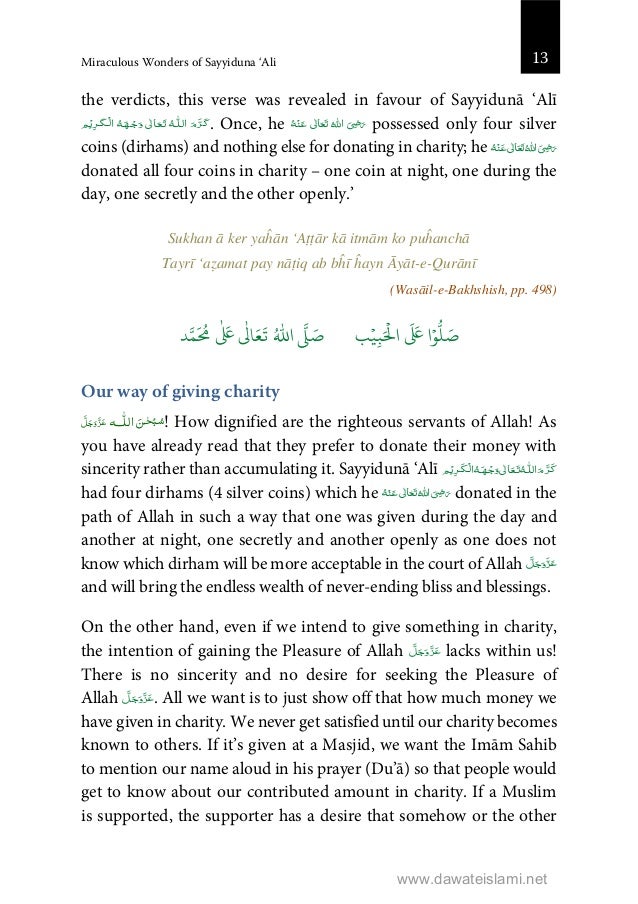 Miraculous Wonders of Sayyiduna ‘Ali
13
the verdicts, this verse was revealed in favour of Sayyidunā ‘Alī
كَرَّمَ اللهُ تَعَالٰى وَجْهَهُ الْكَرِيْم. Once, he رَضِىَ اللهُ تَعَالٰى عَنْهُ possessed only four silver
coins (dirhams) and nothing else for donating in charity; he رَضِىَ اللهُ تَعَالٰى عَنْهُ
donated all four coins in charity – one coin at night, one during the
day, one secretly and the other openly.’
Sukhan ā ker yaĥān ‘Aṭṭār kā itmām ko puĥanchā
Tayrī ‘aẓamat pay nāṭiq ab bĥī ĥayn Āyāt-e-Qurānī
(Wasāil-e-Bakhshish, pp. 498)
صَلُّوْا عَلَى الْحَبِيْب صَلَّى اللهُ تَعَالٰى عَلٰى مُحَمَّد
Our way of giving charity
سُبْحٰنَ اللّٰه عَزَّوَجَلَّ! How dignified are the righteous servants of Allah! As
you have already read that they prefer to donate their money with
sincerity rather than accumulating it. Sayyidunā ‘Alī كَرَّمَ اللهُ تَعَالٰى وَجْهَهُ الْكَرِيْم
had four dirhams (4 silver coins) which he رَضِىَ اللهُ تَعَالٰى عَنْهُ donated in the
path of Allah in such a way that one was given during the day and
another at night, one secretly and another openly as one does not
know which dirham will be more acceptable in the court of Allah عَزَّوَجَلَّ
and will bring the endless wealth of never-ending bliss and blessings.
On the other hand, even if we intend to give something in charity,
the intention of gaining the Pleasure of Allah عَزَّوَجَلَّ lacks within us!
There is no sincerity and no desire for seeking the Pleasure of
Allah عَزَّوَجَلَّ. All we want is to just show off that how much money we
have given in charity. We never get satisfied until our charity becomes
known to others. If it’s given at a Masjid, we want the Imām Sahib
to mention our name aloud in his prayer (Du’ā) so that people would
get to know about our contributed amount in charity. If a Muslim
is supported, the supporter has a desire that somehow or the other
www.dawateislami.net